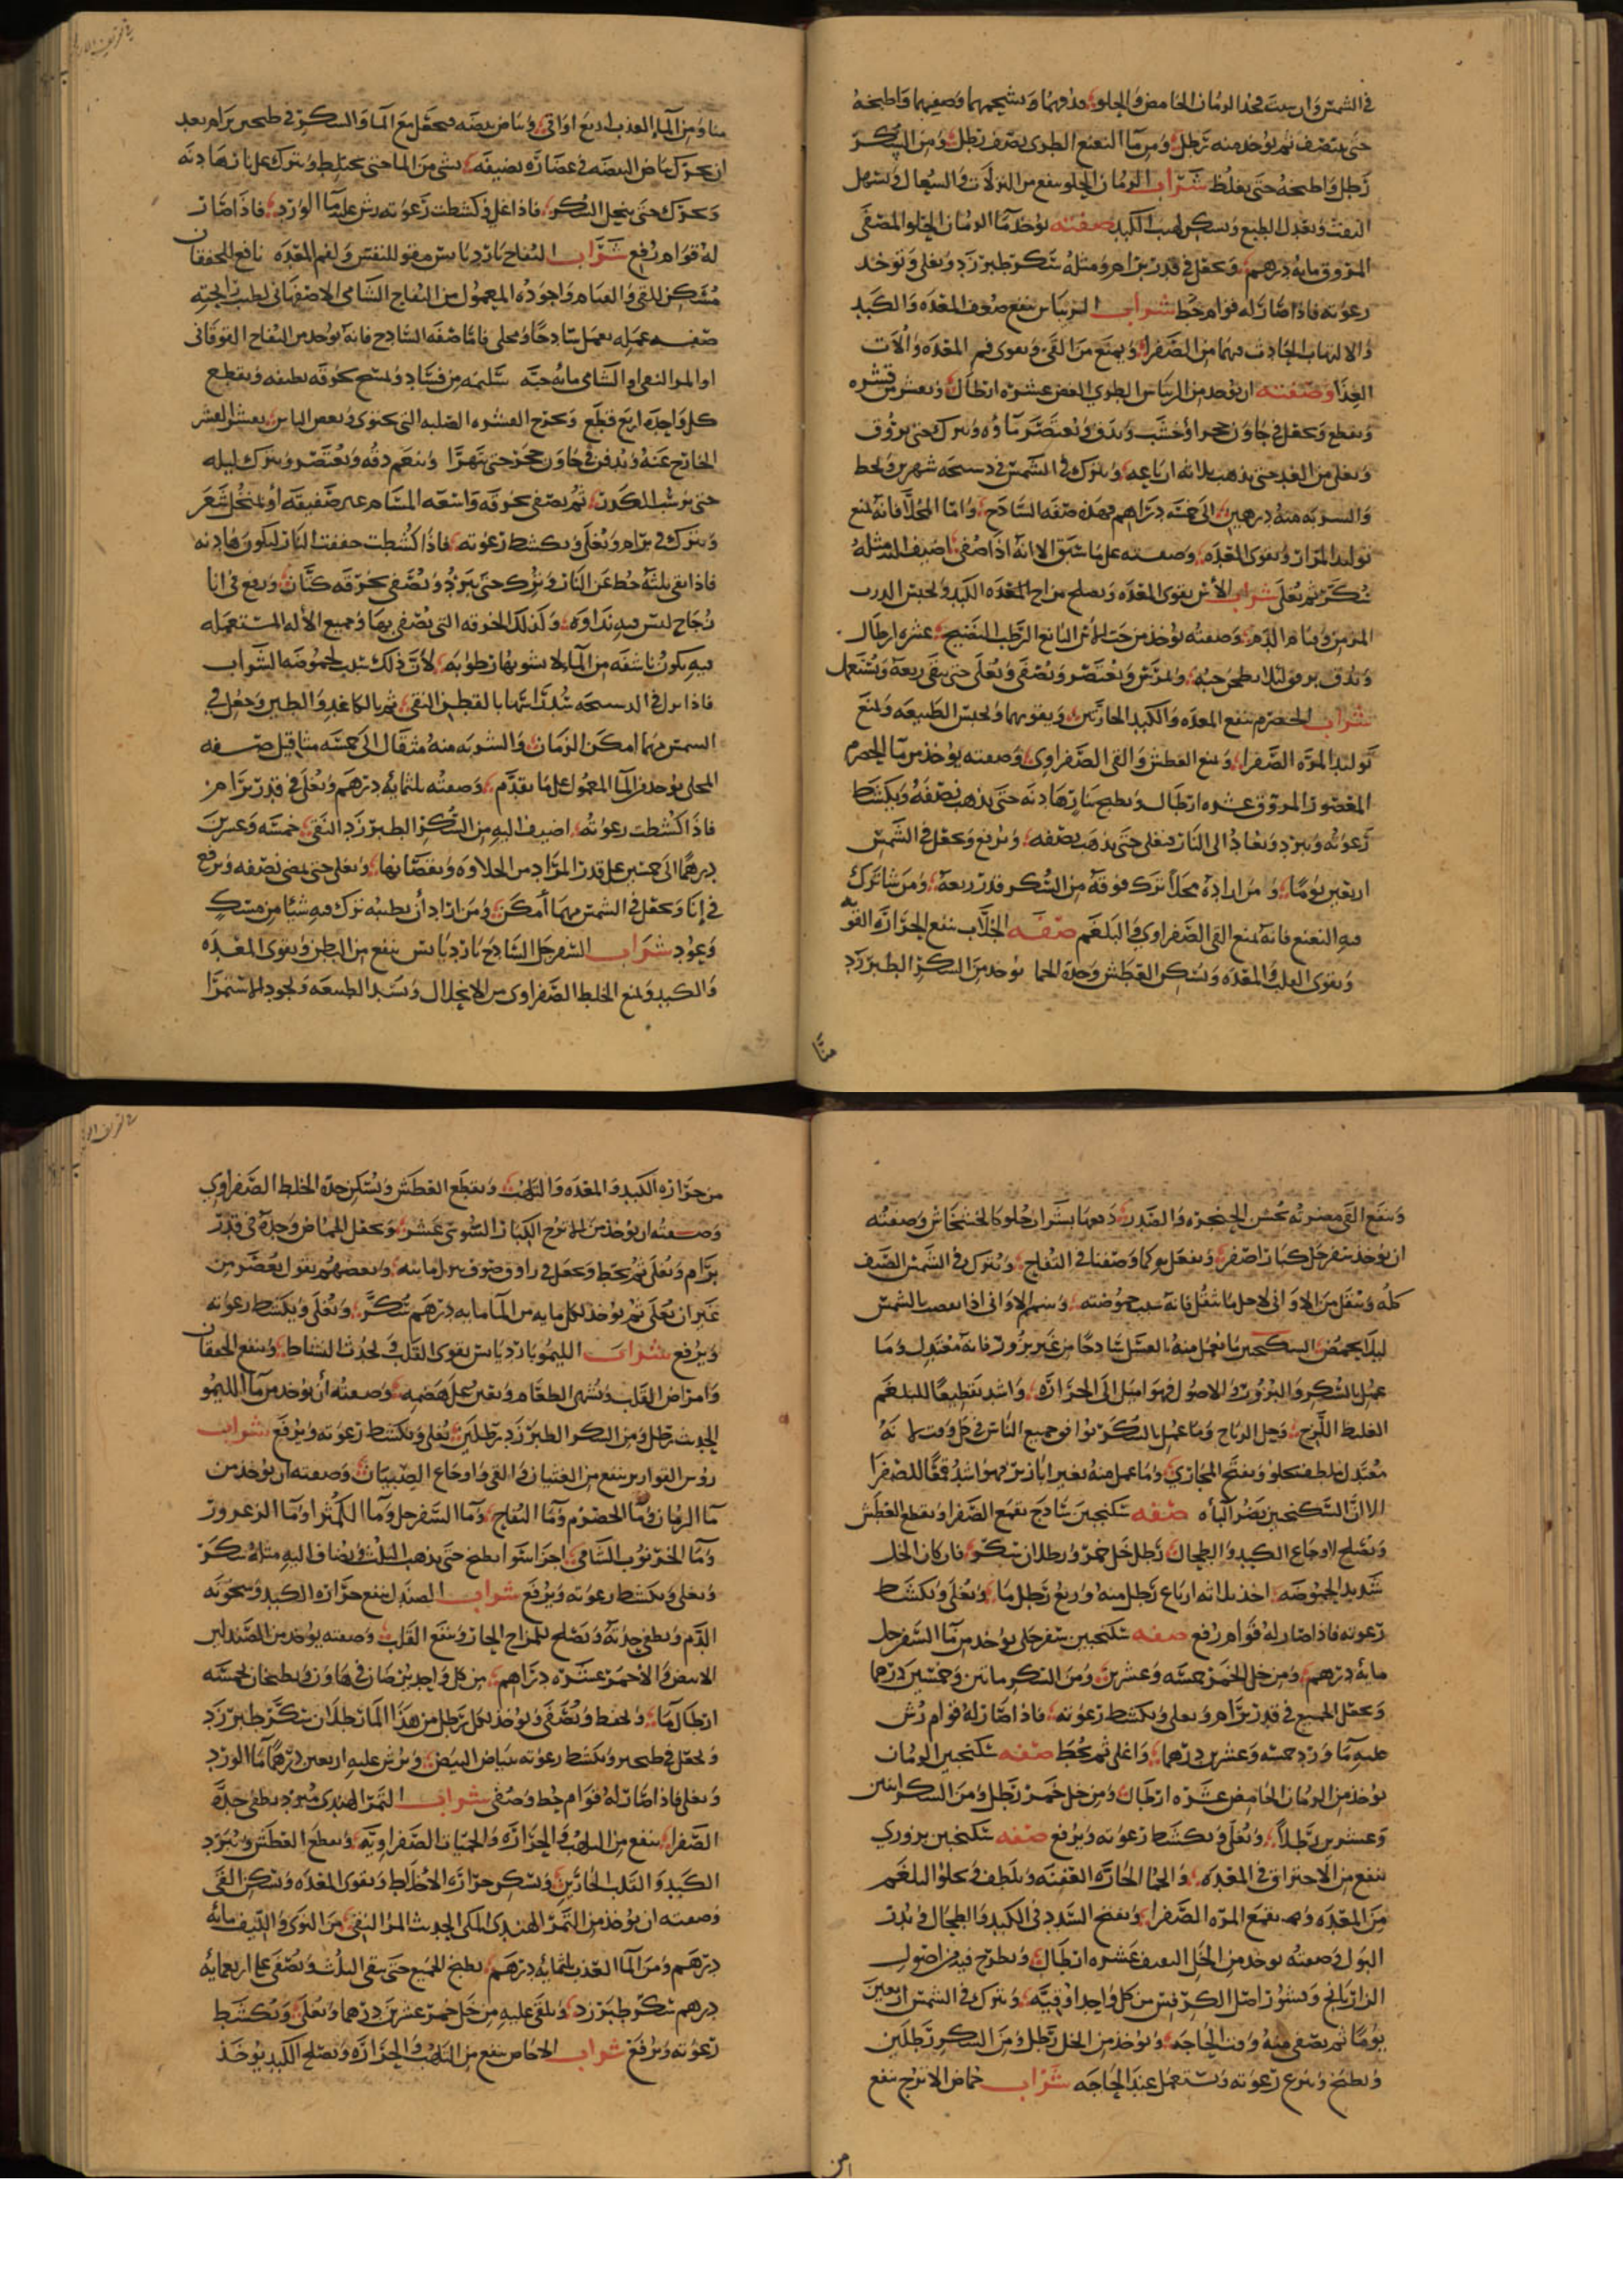 في الشمس وان شيت فخذ الرمان الحامض والحلو فدقهما وشحمهما وصفيهما واطبخه
حتى ينتصف ثم يؤخذ منه رطل ومن ما النعنع الطري نصف رطل ومن السكر
رطل واطبخه حتى يغلظ شراب الرمان الحلو ينفع من النزلات والسعال ويسهل
النفث ويعدل الطبع ويسكن لهب الكبد صفته يؤخذ ما الرمان الحلو المصفى
المروق مايه درهم ويجعل في قدر برام ومثله سكر طبرزد ويغلى وتوخذ
رغوته فاذا صار له قوام حط شراب الريباس ينفع ضعف المعده والكبد
والالتهاب الحادث فيهما من الصفرا ويمنع من القي ويقوى فم المعده والات
الغذا وصفته ان يؤخذ من الريباس الطري الغض عشره ارطال ويقشر من قشره
ويقطع ويجعل في جاون حجر او خشب ويدق ويعتصر ماؤه ويترك حتى يروق
ويغلى من الغد حتى يذهب ثلاثه ارباعه ويترك في الشمس في دستجه شهرين ويحط
والشربه منه درهمين الى خمسه دراهم فهذه صفه الساذج واما المحلا فانه يمنع
توليد المرار ويقوى المعده وصفته على ما سبق الا انه اذا صفي اضيف اليه مثله
سكر ثم يغلى شراب الآس يقوى المعده ويصلح مزاج المعده الكبد ويحبس الذرب
المزمن وقيام الدم وصفته يؤخذ من حب الآس اليانع الرطب النضيج عشره ارطال
ويدق برفق ليلا يطحن حبه ويمرس ويعتصر ويصفى ويغلى حتى يبقى ربعه ويستعمل
شراب الحصرم ينفع المعده والكبد الحارتين ويقويهما ويحبس الطبيعه ويمنع
توليد المره الصفرا ويمنع العطش والقي الصفراوى وصفته يؤخذ من ما الحصرم
المعصور المروق عشره ارطال ويطبخ بنار هادنه حتى يذهب نصفه ويكشط
رغوته ويبرد ويعاد الى النار فيغلى حتى يذهب نصفه ويرفع ويجعل في الشمس
اربعين يوما ومن اراده محلا ترك فوقه من السكر قدر ربعه ومن شا ترك
فيه النعنع فانه يمنع القي الصفراوى والبلغم صفه الجلاب ينفع الحراره القوه
ويقوى القلب والمعده ويسكن العطش وحده الحما يؤخذ من السكر الطبرزد
منا
منا ومن الماء العذب اربع اواقي وبياض بيضه فيجعل مع الما والسكر في طنجير برام بعد
ان يحرك بياض البيضه في غضاره نضيفه بشي من الما حتى يختلط ويترك على نار هادنه
ويحرك حتى ينحل السكر فاذا غلي وكشطت رغوته رش عليه ما الورد فاذا صار
له قوام رفع شراب التفاح بارد يابس مقو للنفس ولفم المعده نافع للخفقان
مسكن للقي والغيام واجوده المعمول من التفاح الشامي الاصفهاني لطيب الجته
صفه عمله يعمل ساذجا ومحلى فاما صفه الساذج فانه يؤخذ من التفاح الفوقانى
او المر النعى او الشامى مايه حبه سليمه من فساد ويمسح بخرقه نظيفه ويقطع
كل واحده اربع قطع ويخرج القشره الصلبه التي تحتوى وبعض الناس يقشر القشر
الخارج عنه ويدفن في جاون حجر حتى يتهرا وينعم دقه ويعتصر ويترك ليله
حتى يرسب الكدر ثم يصفى بخرقه واسعه المسام غير ضفيقه او بمنخل شعر
ويترك في برام ويغلى ويكشط رغوته فاذا كشطت حففت النار ليكون هادنه
فاذا بقي ثلثه حط عن النار ويترك حتى يبرد ويصفى بخرقه كتان ويرفع في انا
زجاج ليس فيه نداوه وكذلك الخرقه التي يصفى بها وجميع الأله المستعمله
فيه يكون ناشفه من الماء لا يشوبها رطوبه لأن ذلك سبب لحموضه الشراب
فاذا نزل في الدستجه شد راسها بالقطن النقي ثم بالكاغد والطين وجعل في
الشمس مهما امكن الزمان والشربه منه مثقال الى خمسه مثاقيل صفه
المحلى يؤخذ من الما المعمول على ما تقدم وصفته ثلثمايه درهم ويغلى في قدر برام
فاذا كشطت رغوته اضيف اليه من السكر الطبرزد النقي خمسه وعشرين
درهما الى خمسين على قدر المراد من الحلاوه ونقصانها ويغلى حتى يمضى نصفه ويرفع
في انا ويجعل في الشمس مهما امكن ومن اراد أن يطيبه ترك فيه شيا من مسك
وعود شراب السفرجل الساذج بارد يابس ينفع من البطن ويقوى المعده
والكبد ويمنع الخلط الصفراوى من الانحلال ويشد الطبيعه ويجود الاستمرا
وينفع القي مضرته بخشن الحنجره والصدر دفعها بشراب حلو كالخشخاش وصفته
ان يؤخذ سفرجل كبار اصفر ويفعل به كما وصفنا في التفاح ويترك في الشمس الصيف
كله وينقل من الاواني لاجل ما ثفل فانه سبب حموضته وشم الاواني اذا نصب بالشمس
ليلا يحمض السكنجبين ما يعمل منه بالعسل ساذجا من غير بزور فانه معتدل وما
عمل بالسكر والبزور والاصول فهو اميل الى الحراره واشد تقطيعا للبلغم
الغليظ اللزج ويحل الرياح وما عمل بالسكر يوافق جميع الناس في كل وقت لانه
معتدل يلطف ويجلو ويفتح المجاري وما عمل منه بغير ابازير فهو اشد قمعا للصفرا
الا ان السكنجبين يضر الباه صفه سكنجبين ساذج يقمع الصفرا ويقطع العطش
ويصلح لاوجاع الكبد والطحال رطل خل خمر ورطلان سكر فان كان الخل
شديد الحموضه اخذ ثلاثه ارباع رطل منه وربع رطل ما ويغلى ويكشط
رغوته فاذا صار له قوام رفع صفه سكنجبين سفرجلى يؤخذ من ما السفرجل
مايه درهم ومن خل الخمر خمسه وعشرين ومن السكر مائتين وخمسين درهما
ويجعل الجميع في قدر برام ويغلى ويكشط رغوته فاذا صار له قوام رش
عليه ما ورد خمسه وعشرين درهما واغلى ثم يحط صفه سكنجبين الرمان
يؤخذ من الرمان الحامض عشره ارطال ومن خل خمر رطل ومن السكر اثنين
وعشرين رطلا ويغلى ويكشط رغوته ويرفع صفه سكنجبين بزوري
ينفع من الاحتراق في المعده والحما الحاره العفنه ويلطف ويجلو البلغم
من المعده ويقمع المره الصفرا ويفتح السدد في الكبد والطحال ويدر
البول وصفته يؤخذ من الخل الثقيف عشره ارطال ويطرح فيه من اصول
الرازيانج وقشور اصل الكرفس من كل واحد اوقيه ويترك في الشمس اربعين
يوما ثم يصفى منه وقت الحاجه ويؤخذ من الخل رطل ومن السكر رطلين
ويطبخ وينزع رغوته ويستعمل عند الحاجه شراب حماض الاترج ينفع
من
من حراره الكبد والمعده والتلهب ويقطع العطش ويسكن حده الخلط الصفراوي
وصفته ان يؤخذ من الاترج الكبار السوسى عشر ويجعل الحماض وحده في قدر
برام ويغلى ثم يحط ويجعل في راووق صوف ينزل مائه وبعضهم يقول يعصر من
غير ان يغلى ثم يؤخذ لكل مايه من الما مايه درهم سكر ويغلى ويكشط رغوته
ويرفع شراب الليمو بارد يابس يقوى القلب ويحدث النشاط وينفع الخفقان
وامراض القلب ويشهى الطعام ويعين على هضمه وصفته أن يؤخذ من ما الليمو
الحديث رطل ومن السكر الطبرزد رطلين يغلى ويكشط رغوته ويرفع شراب
روس القوارير ينفع من الغثيان والقي واوجاع الصبيان وصفته ان يؤخذ من
ما الرمان وما الحصرم وما التفاح وما السفرجل وما الكمثرا وما الزعرور
وما الخرنوب الشامي اجزا سوا يطبخ حتى يذهب الثلث ويضاف اليه مثله سكر
ويغلى ويكشط رغوته ويرفع شراب الصندل ينفع حراره الكبد وسخونه
الدم ويطفي حدته ويصلح للمزاج الحار وينفع القلب وصفته يؤخذ من الصندلين
الابيض والاحمر عشره دراهم من كل واحد يرضان في هاون ويطبخان بخمسه
ارطال ما ويحفظ ويصفى ويؤخذ لكل رطل من هذا الما رطلان سكر طبرزد
ويجعل في طنجير ويكشط رغوته ببياض البيض ويرش عليه اربعين درهما ما الورد
ويغلى فاذا صار له قوام حط وصفى شراب التمر الهندى مبرد يطفى حده
الصفرا ينفع من اللهب والحراره والحميات الصفراويه ويقطع العطش ويبرد
الكبد والقلب الحارين ويسكن حرازه الاخلاط ويقوى المعده ويسكن القي
وصفته ان يؤخذ من التمر الهندى المكى الحديث المر النقي من النوى والليف مايه
درهم ومن الما العذب ثلثمايه درهم يطبخ الجميع حتى يبقى الثلث ويصفى على اربعمايه
درهم سكر طبرزد ويلقى عليه من خل خمر عشرين درهما ويغلى ويكشط
رغوته ويرفع شراب الاجاص ينفع من التلهب والحراره ويصلح الكبد يؤخذ